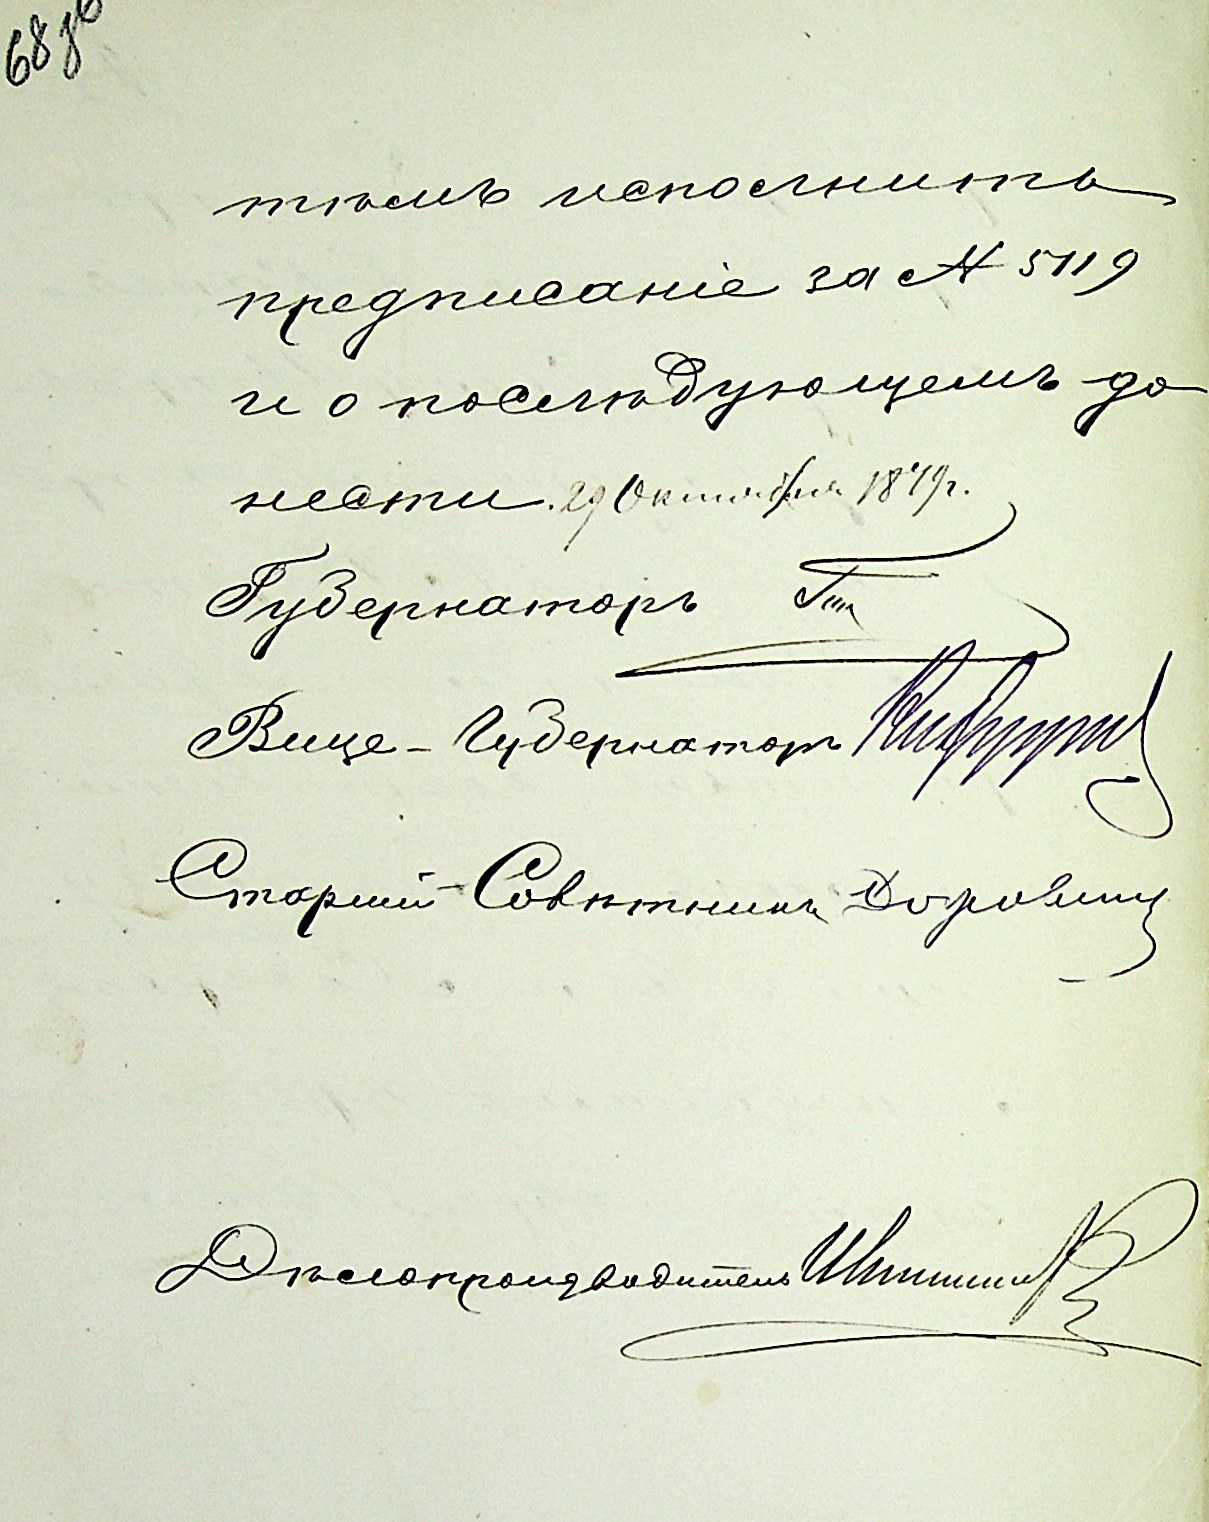 68 об
тѣмъ исполнить
предписаніе за № 5119
и о послѣдующемъ до
нести. 29 Октября 1879 г.
Губернаторъ
Вице-Губернаторъ
Старшій Совѣтникъ
Дѣлопроизводитель